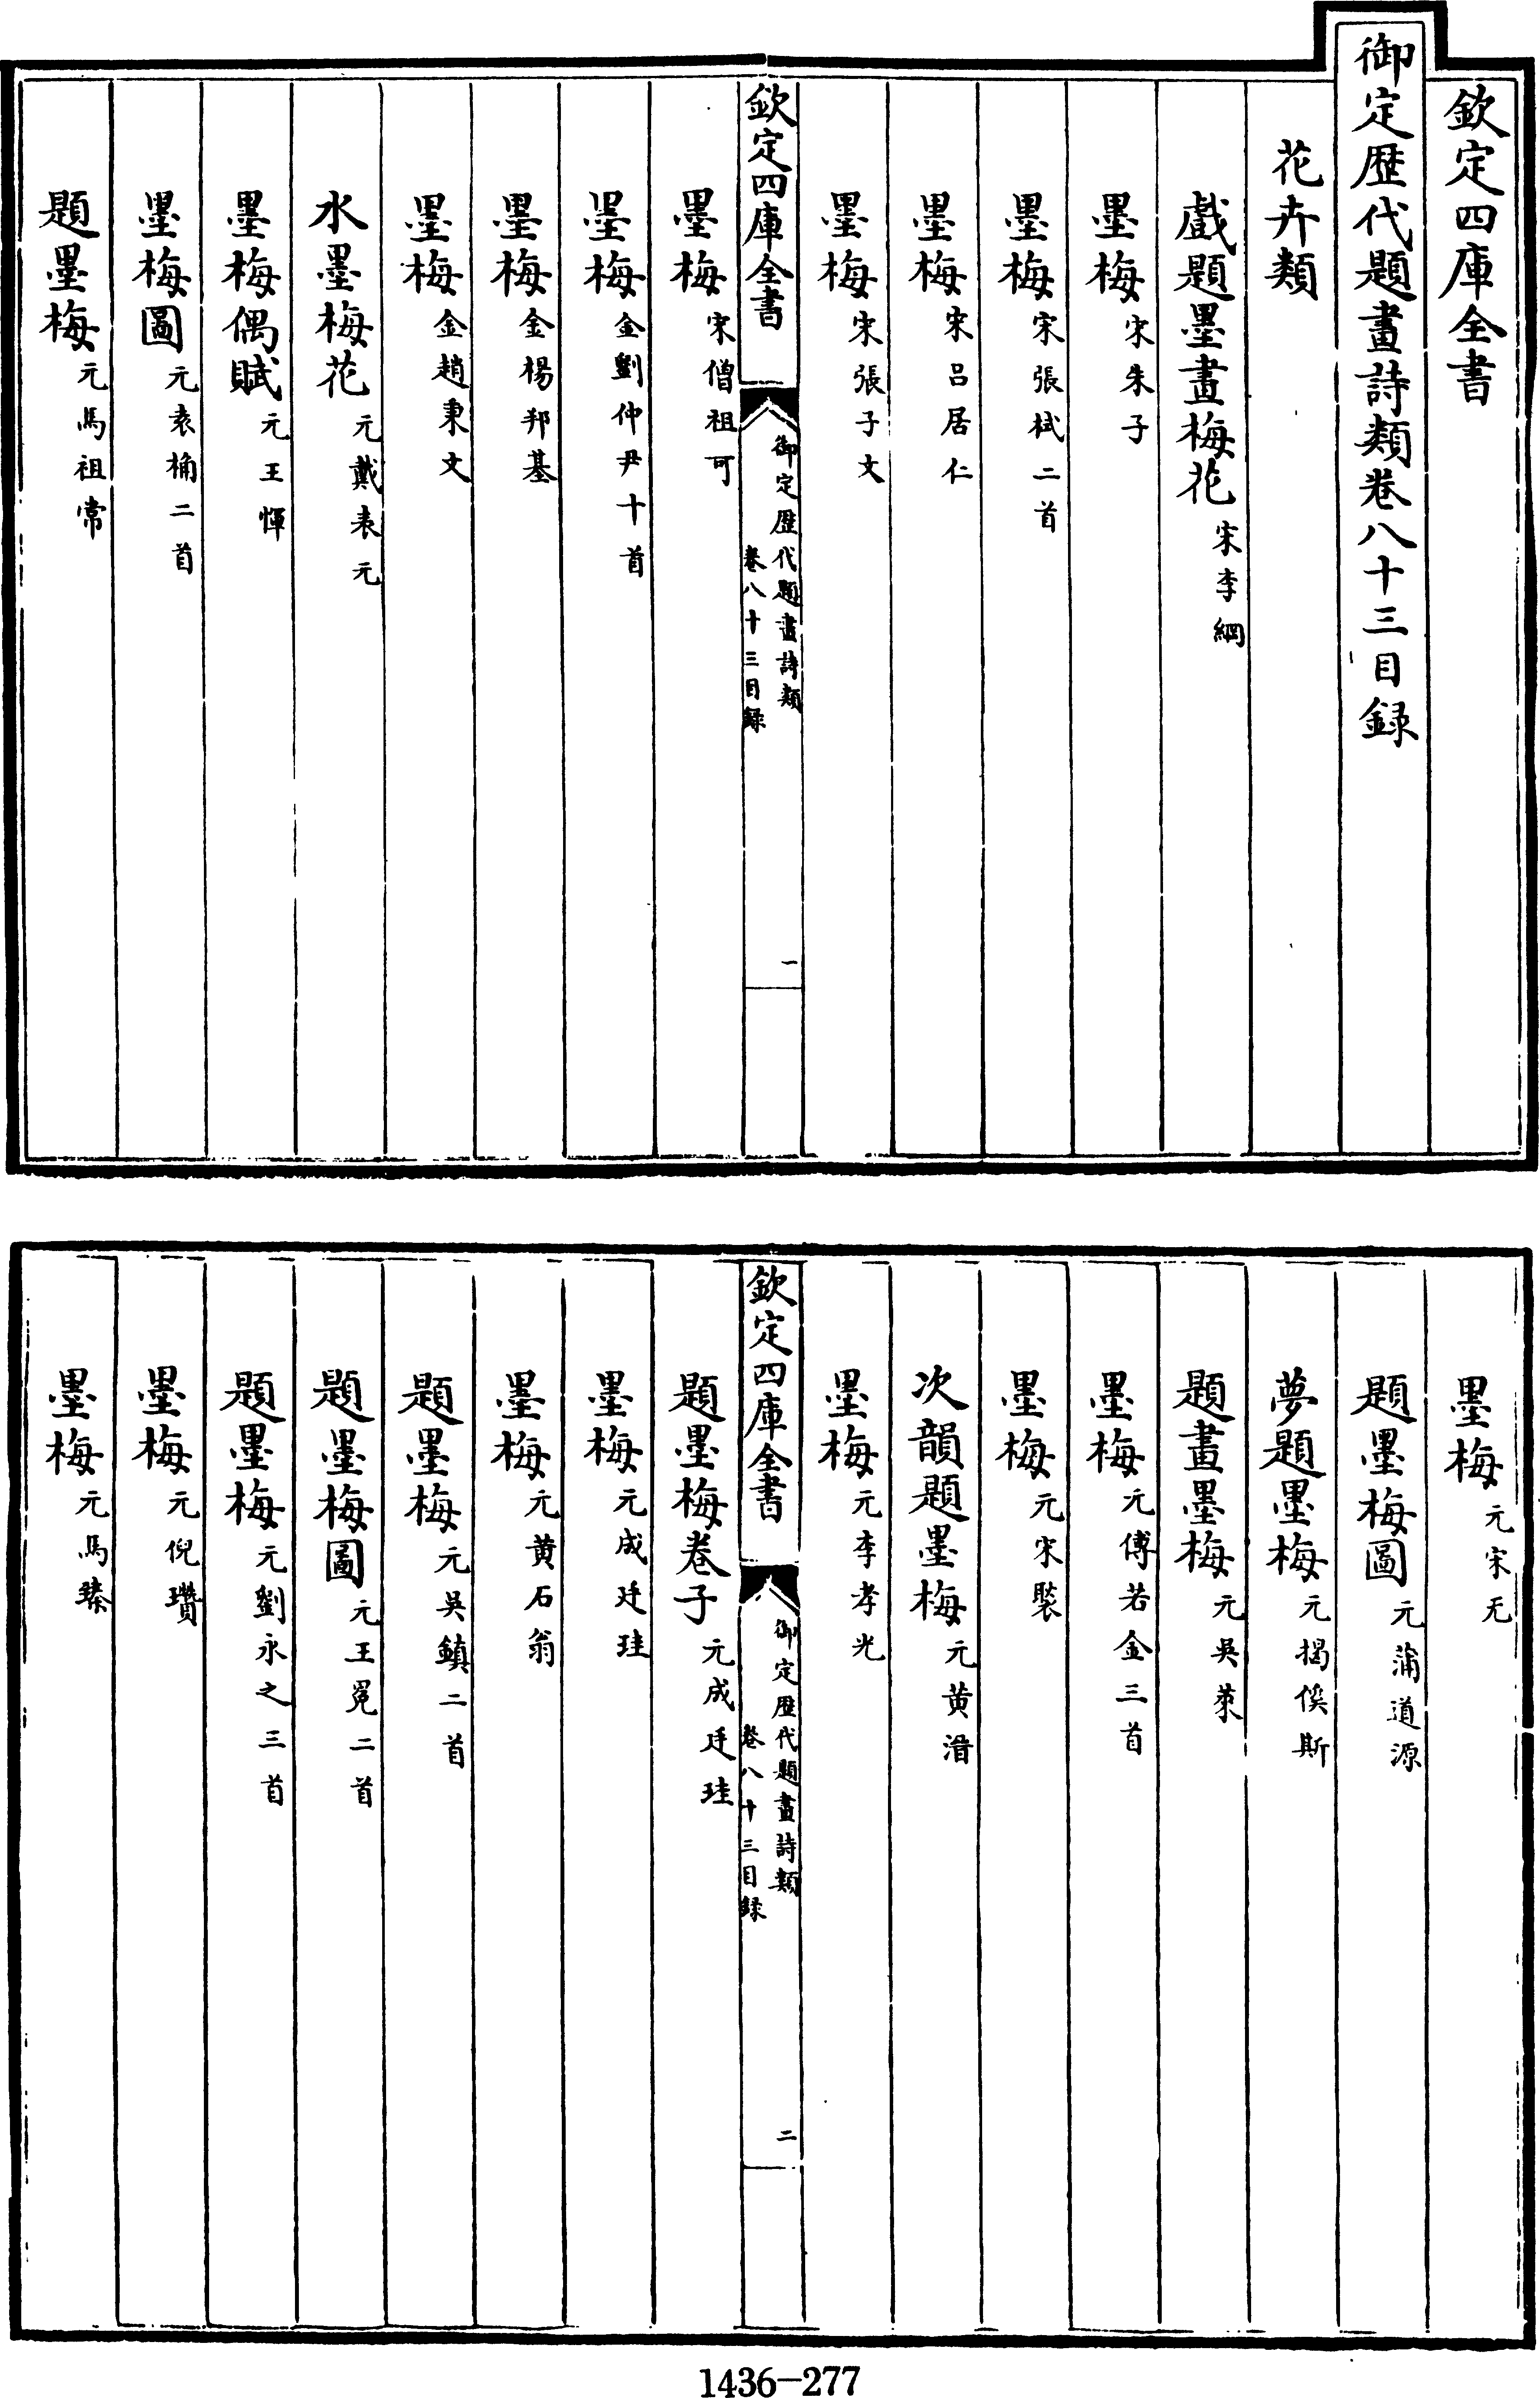 欽定四庫全書
御定歴代題畫詩類卷八十三目録
花卉類
戲題墨畫梅花宋李綱
墨梅宋朱子
墨梅宋張栻二首
墨梅宋呂居仁
墨梅宋張子文
欽定四庫全書
御定歴代題畫詩類
卷八十三目録
一
墨梅宋僧祖可
墨梅金劉仲尹十首
墨梅金楊邦基
墨梅金趙秉文
水墨梅花元戴表元
墨梅偶賦元王惲
墨梅圖元袁桷二首
題墨梅元馬祖常
墨梅元宋无
題墨梅圖元蒲道源
夢題墨梅元揭傒斯
題畫墨梅元吳萊
墨梅元傅若金三首
墨梅元宋褧
次韻題墨梅元黃溍
墨梅元李孝光
欽定四庫全書
御定歴代題畫詩類
卷八十三目録
二
題墨梅卷子元成廷珪
墨梅元成廷珪
墨梅元黃石翁
題墨梅元吳鎮二首
題墨梅圖元王冕二首
題墨梅元劉永之三首
墨梅元倪瓚
墨梅元馬臻
1436-277